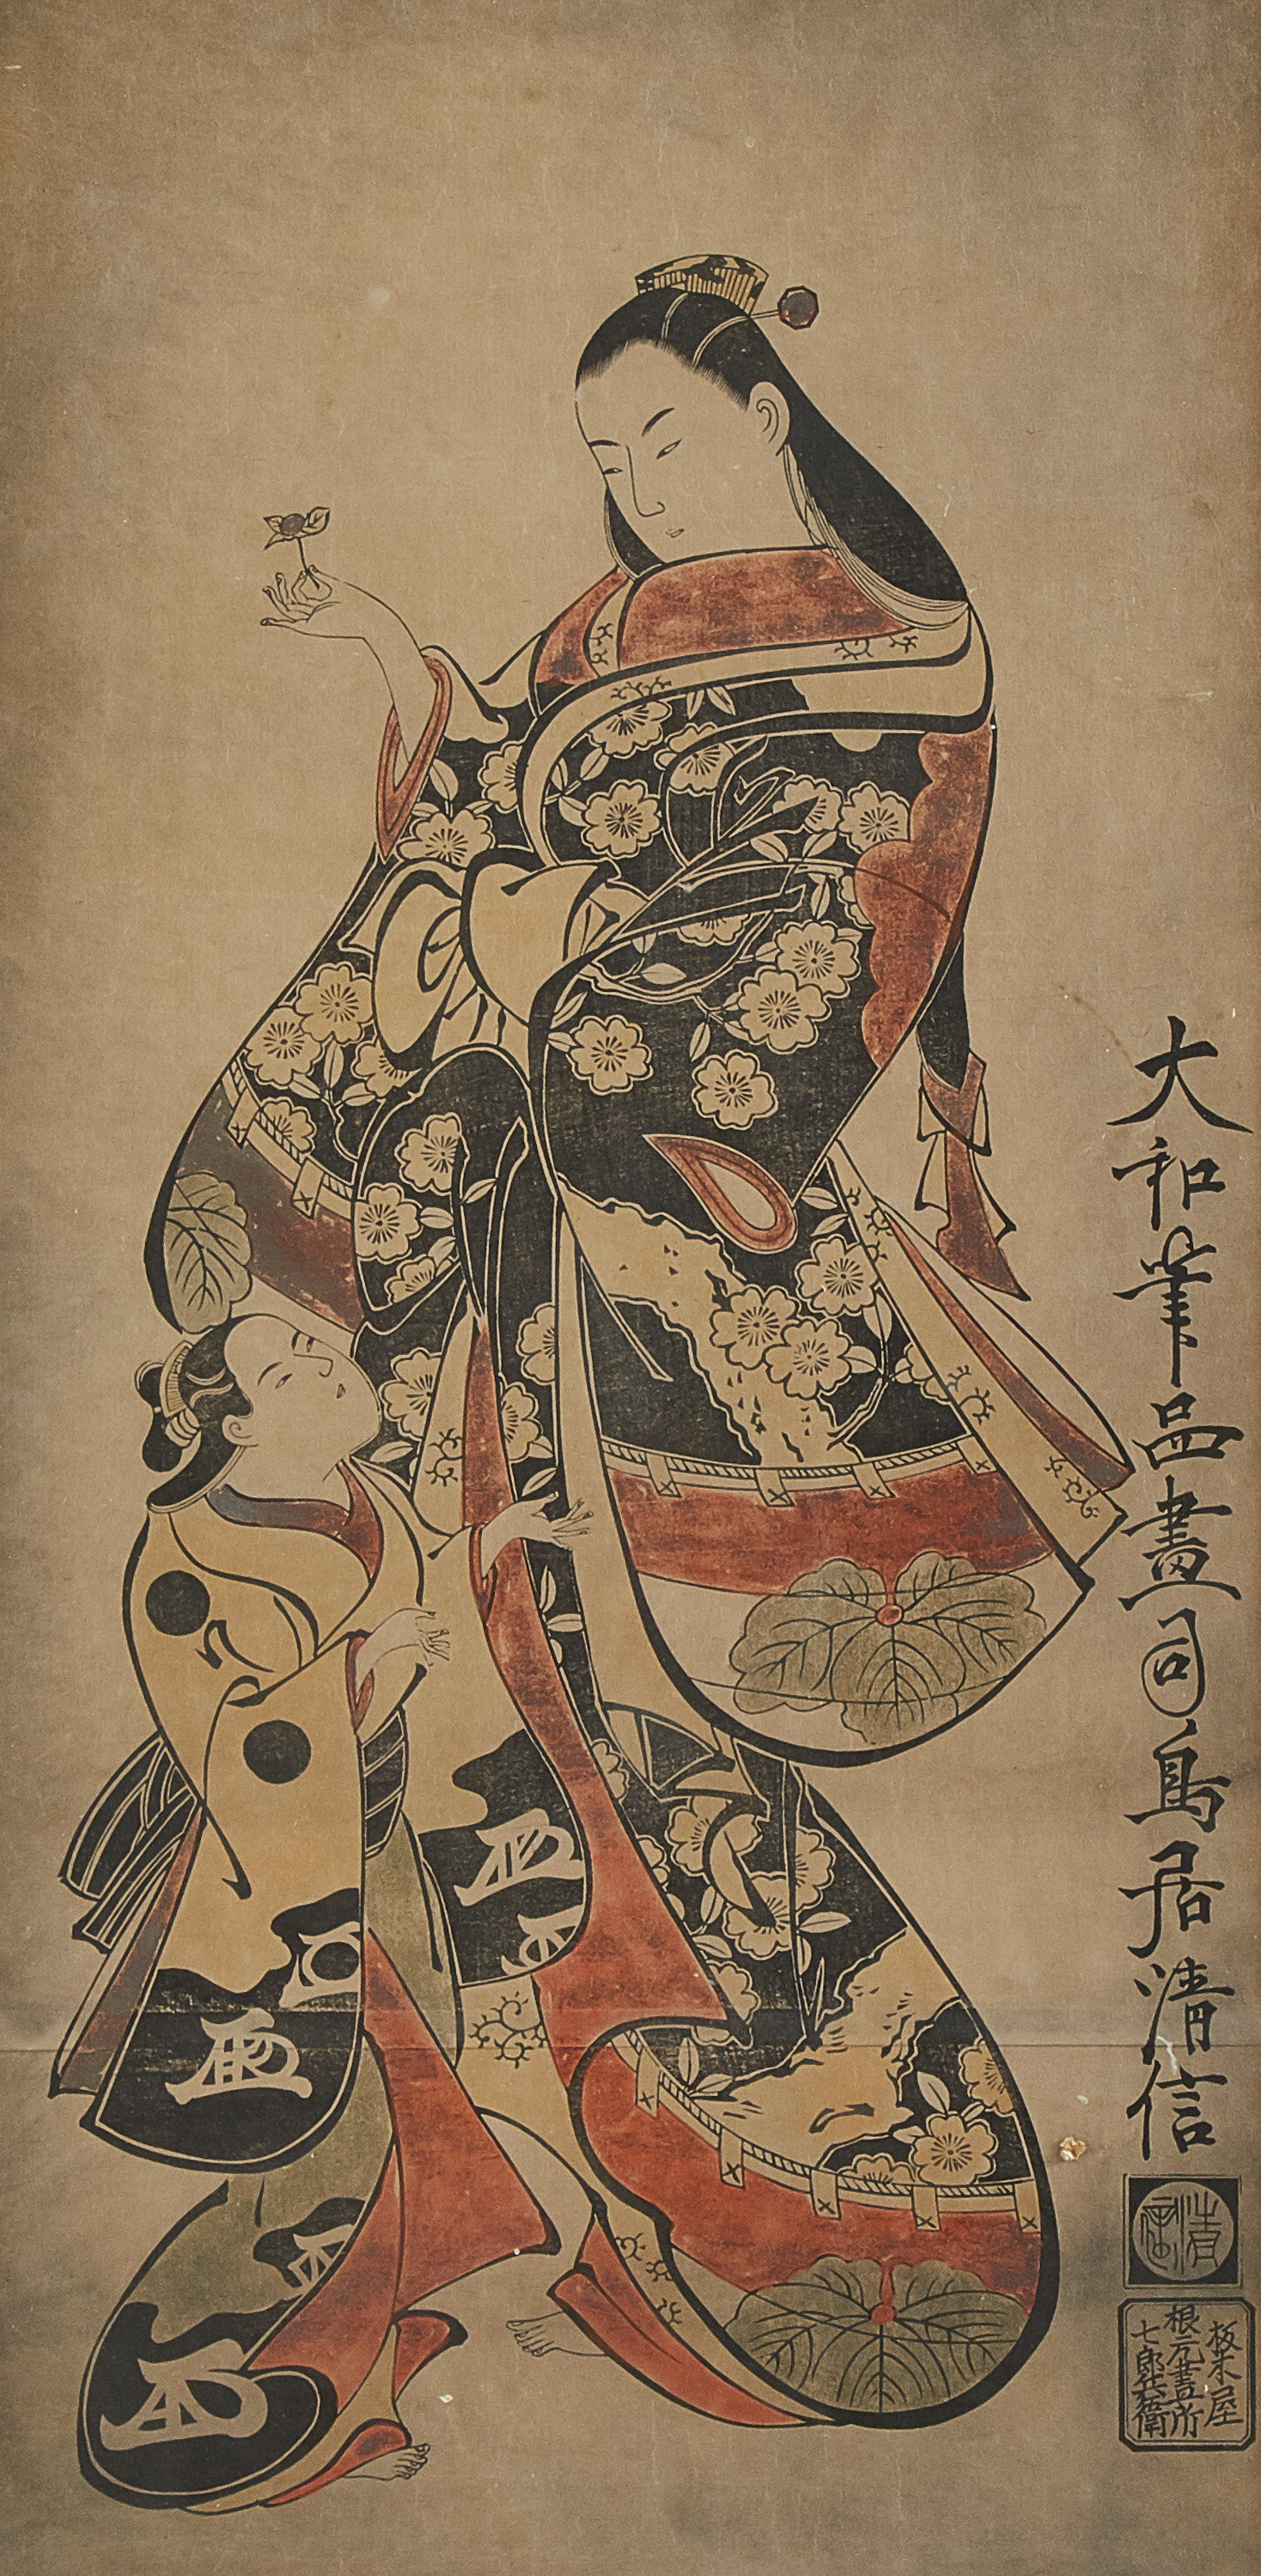 大和筆品畫司鳥居清信
清信
板木屋
根元畫所
七郎兵衛